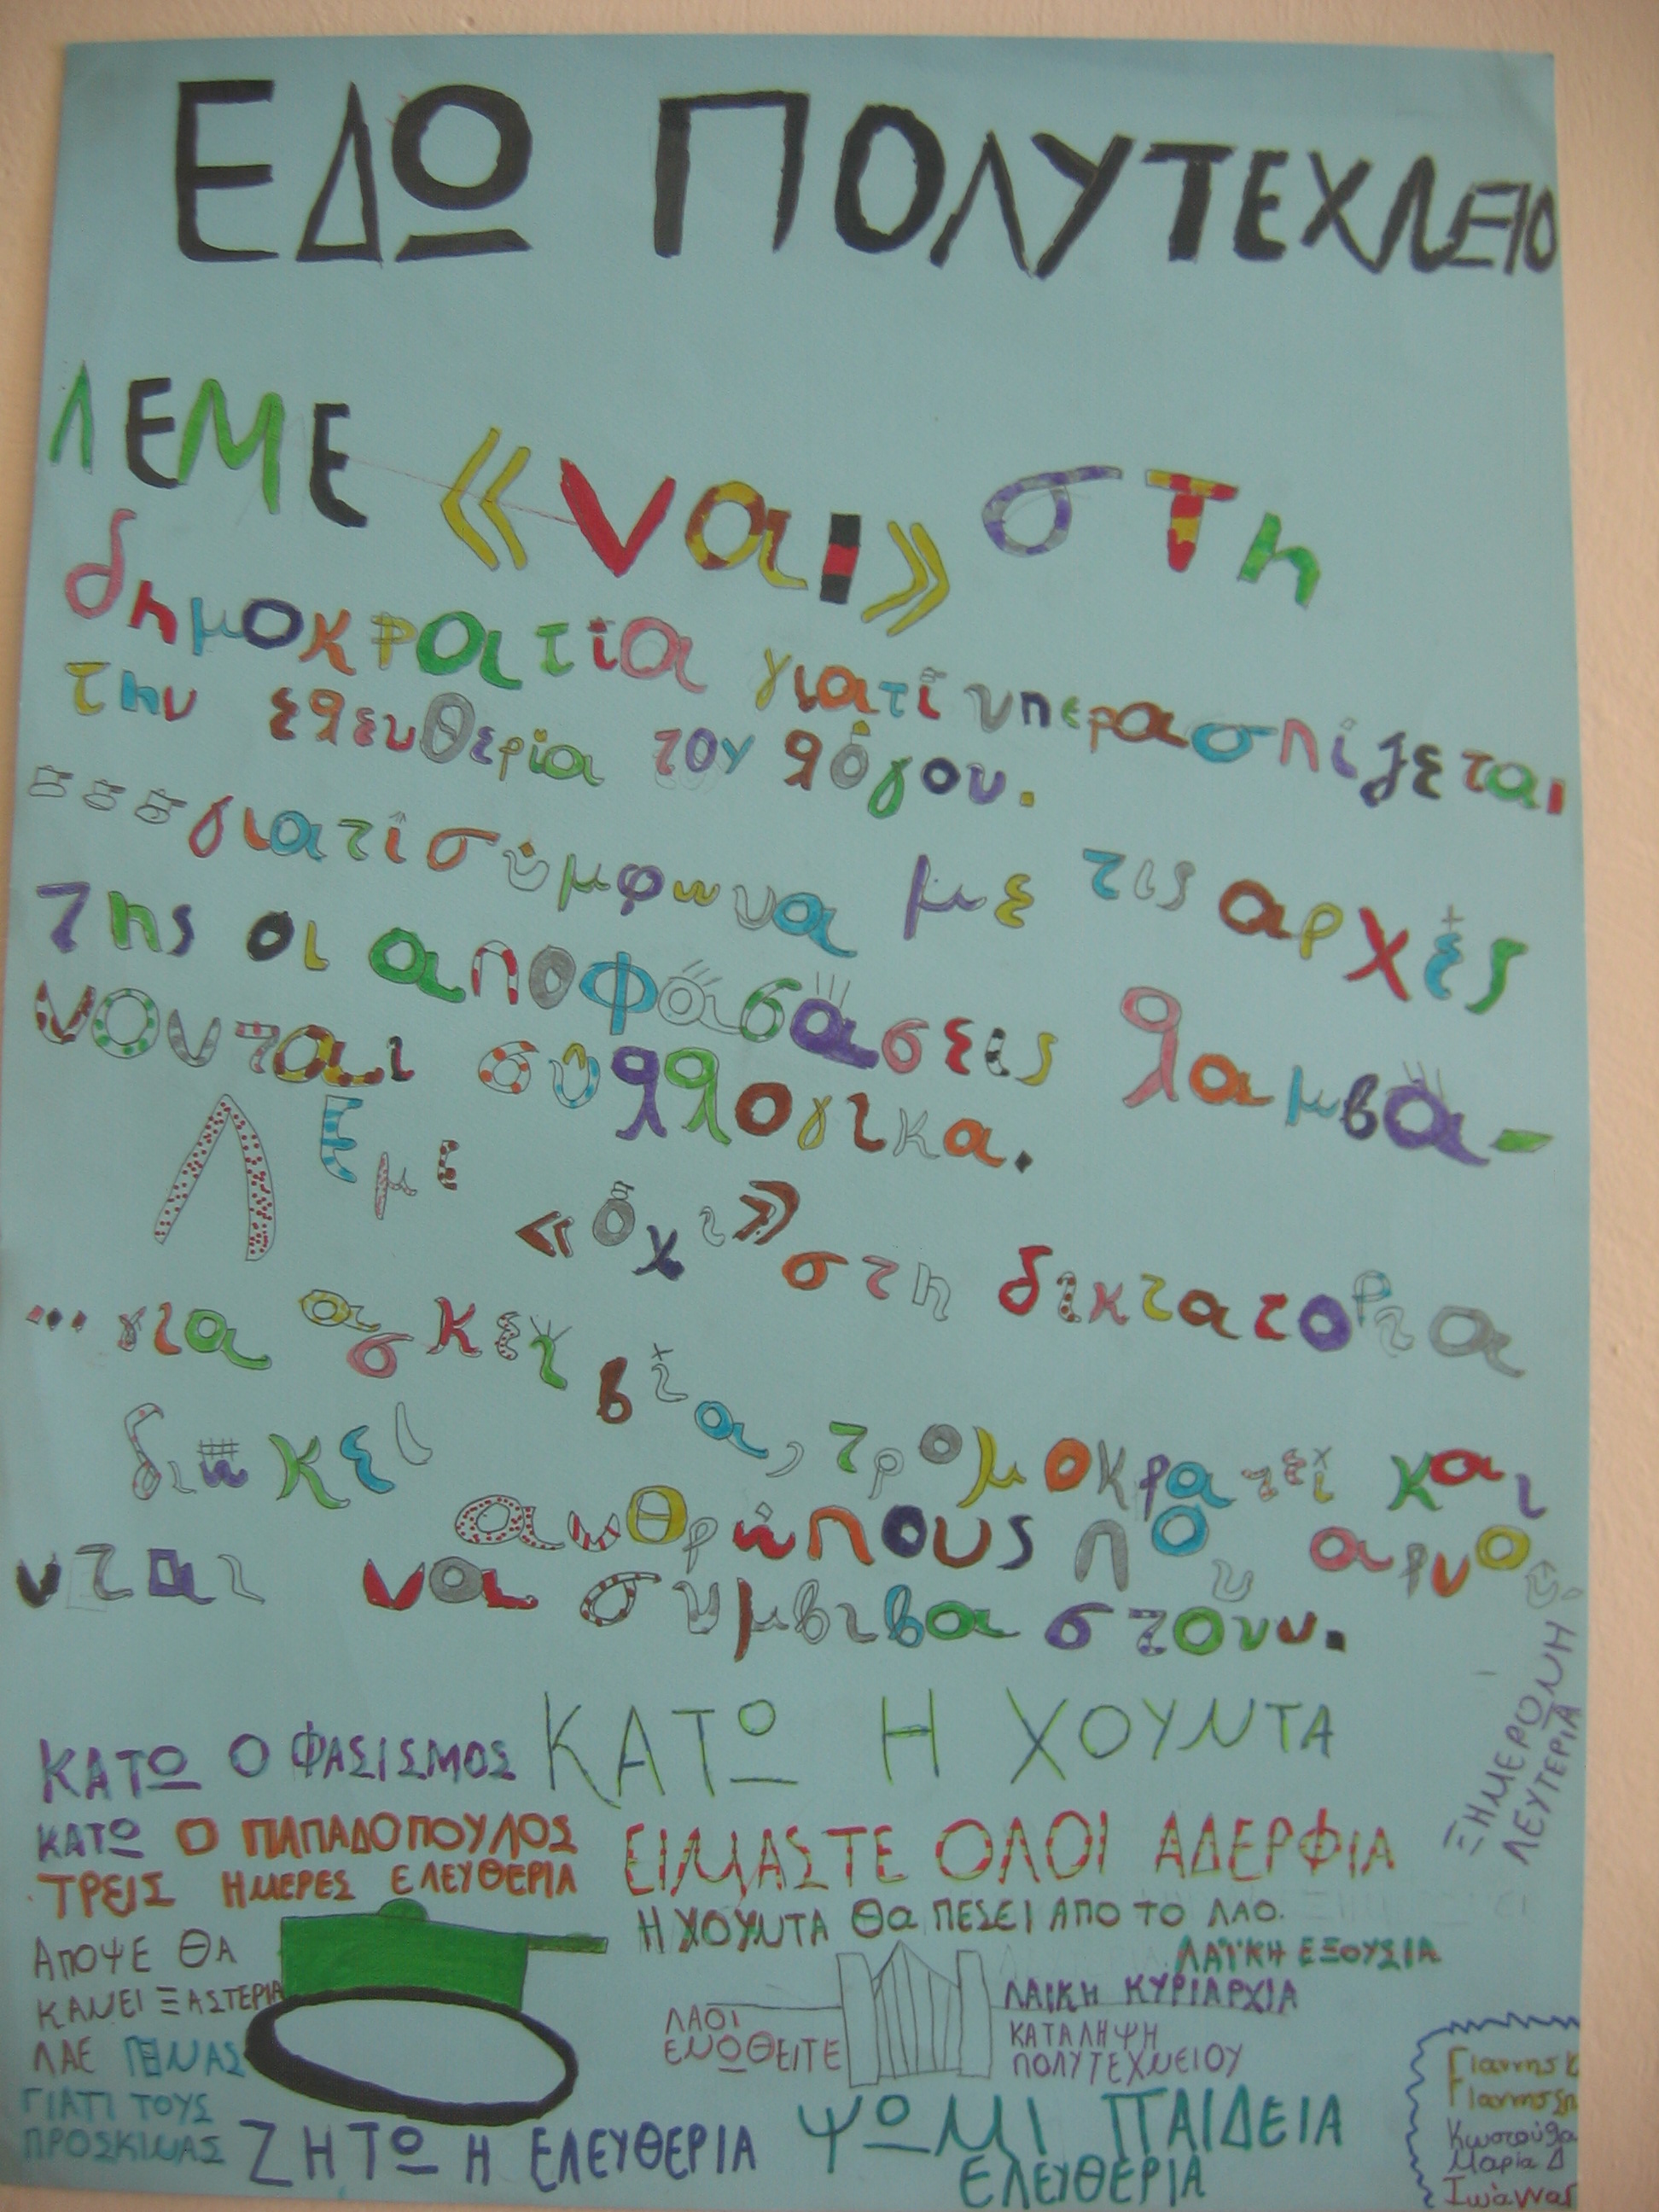 ΕΔΩ ΠΟΛΥΤΕΧΝΕΙΟ
ΛΕΜΕ «ναι» στη
δημοκρατία γιατί υπερασπίζεται
την ελευθερία του λόγου.
...γιατί σύμφωνα με τις αρχές
της οι αποφάσάσεις λαμβά-
νονται σύλλογικα.
Λεμε «όχι» στη δικτατορια
...για ασκεί βία, τρομοκρατεί και
διώκει ανθρώπους που αρνού
νται να συμβιβαστούν.
ΞΗΜΕΡΩΝΗ
ΛΕΥΤΕΡΙΑ
ΚΑΤΩ Ο ΦΑΣΙΣΜΟΣ
ΚΑΤΩ Η ΧΟΥΝΤΑ
ΚΑΤΩ Ο ΠΑΠΑΔΟΠΟΥΛΟΣ
ΤΡΕΙΣ ΗΜΕΡΕΣ ΕΛΕΥΘΕΡΙΑ
ΕΙΜΑΣΤΕ ΟΛΟΙ ΑΔΕΡΦΙΑ
Η ΧΟΥΝΤΑ Θα ΠΕΣΕΙ ΑΠΟ ΤΟ ΛΑΟ.
ΛΑΪΚΗ ΕΞΟΥΣΙΑ
ΑΠΟΨΕ ΘΑ
ΚΑΝΕΙ ΞΑΣΤΕΡΙΑ
ΛΑΕ ΠΕΙΝΑΣ
ΓΙΑΤΙ ΤΟΥΣ
ΠΡΟΣΚΙΝΑΣ
ΛΑΟΙ
ΕΝΩΘΕΙΤΕ
ΛΑΙΚΗ ΚΥΡΙΑΡΧΙΑ
ΚΑΤΑΛΗΨΗ
ΠΟΛΥΤΕΧΝΕΙΟΥ
ΖΗΤΩ Η ΕΛΕΥΘΕΡΙΑ
ΨΩΜΙ ΠΑΙΔΕΙΑ
ΕΛΕΥΘΕΡΙΑ
Γιαννης Κ
Γιαννης
Κωστούλα
Μαρία Δ
Ιωάννας